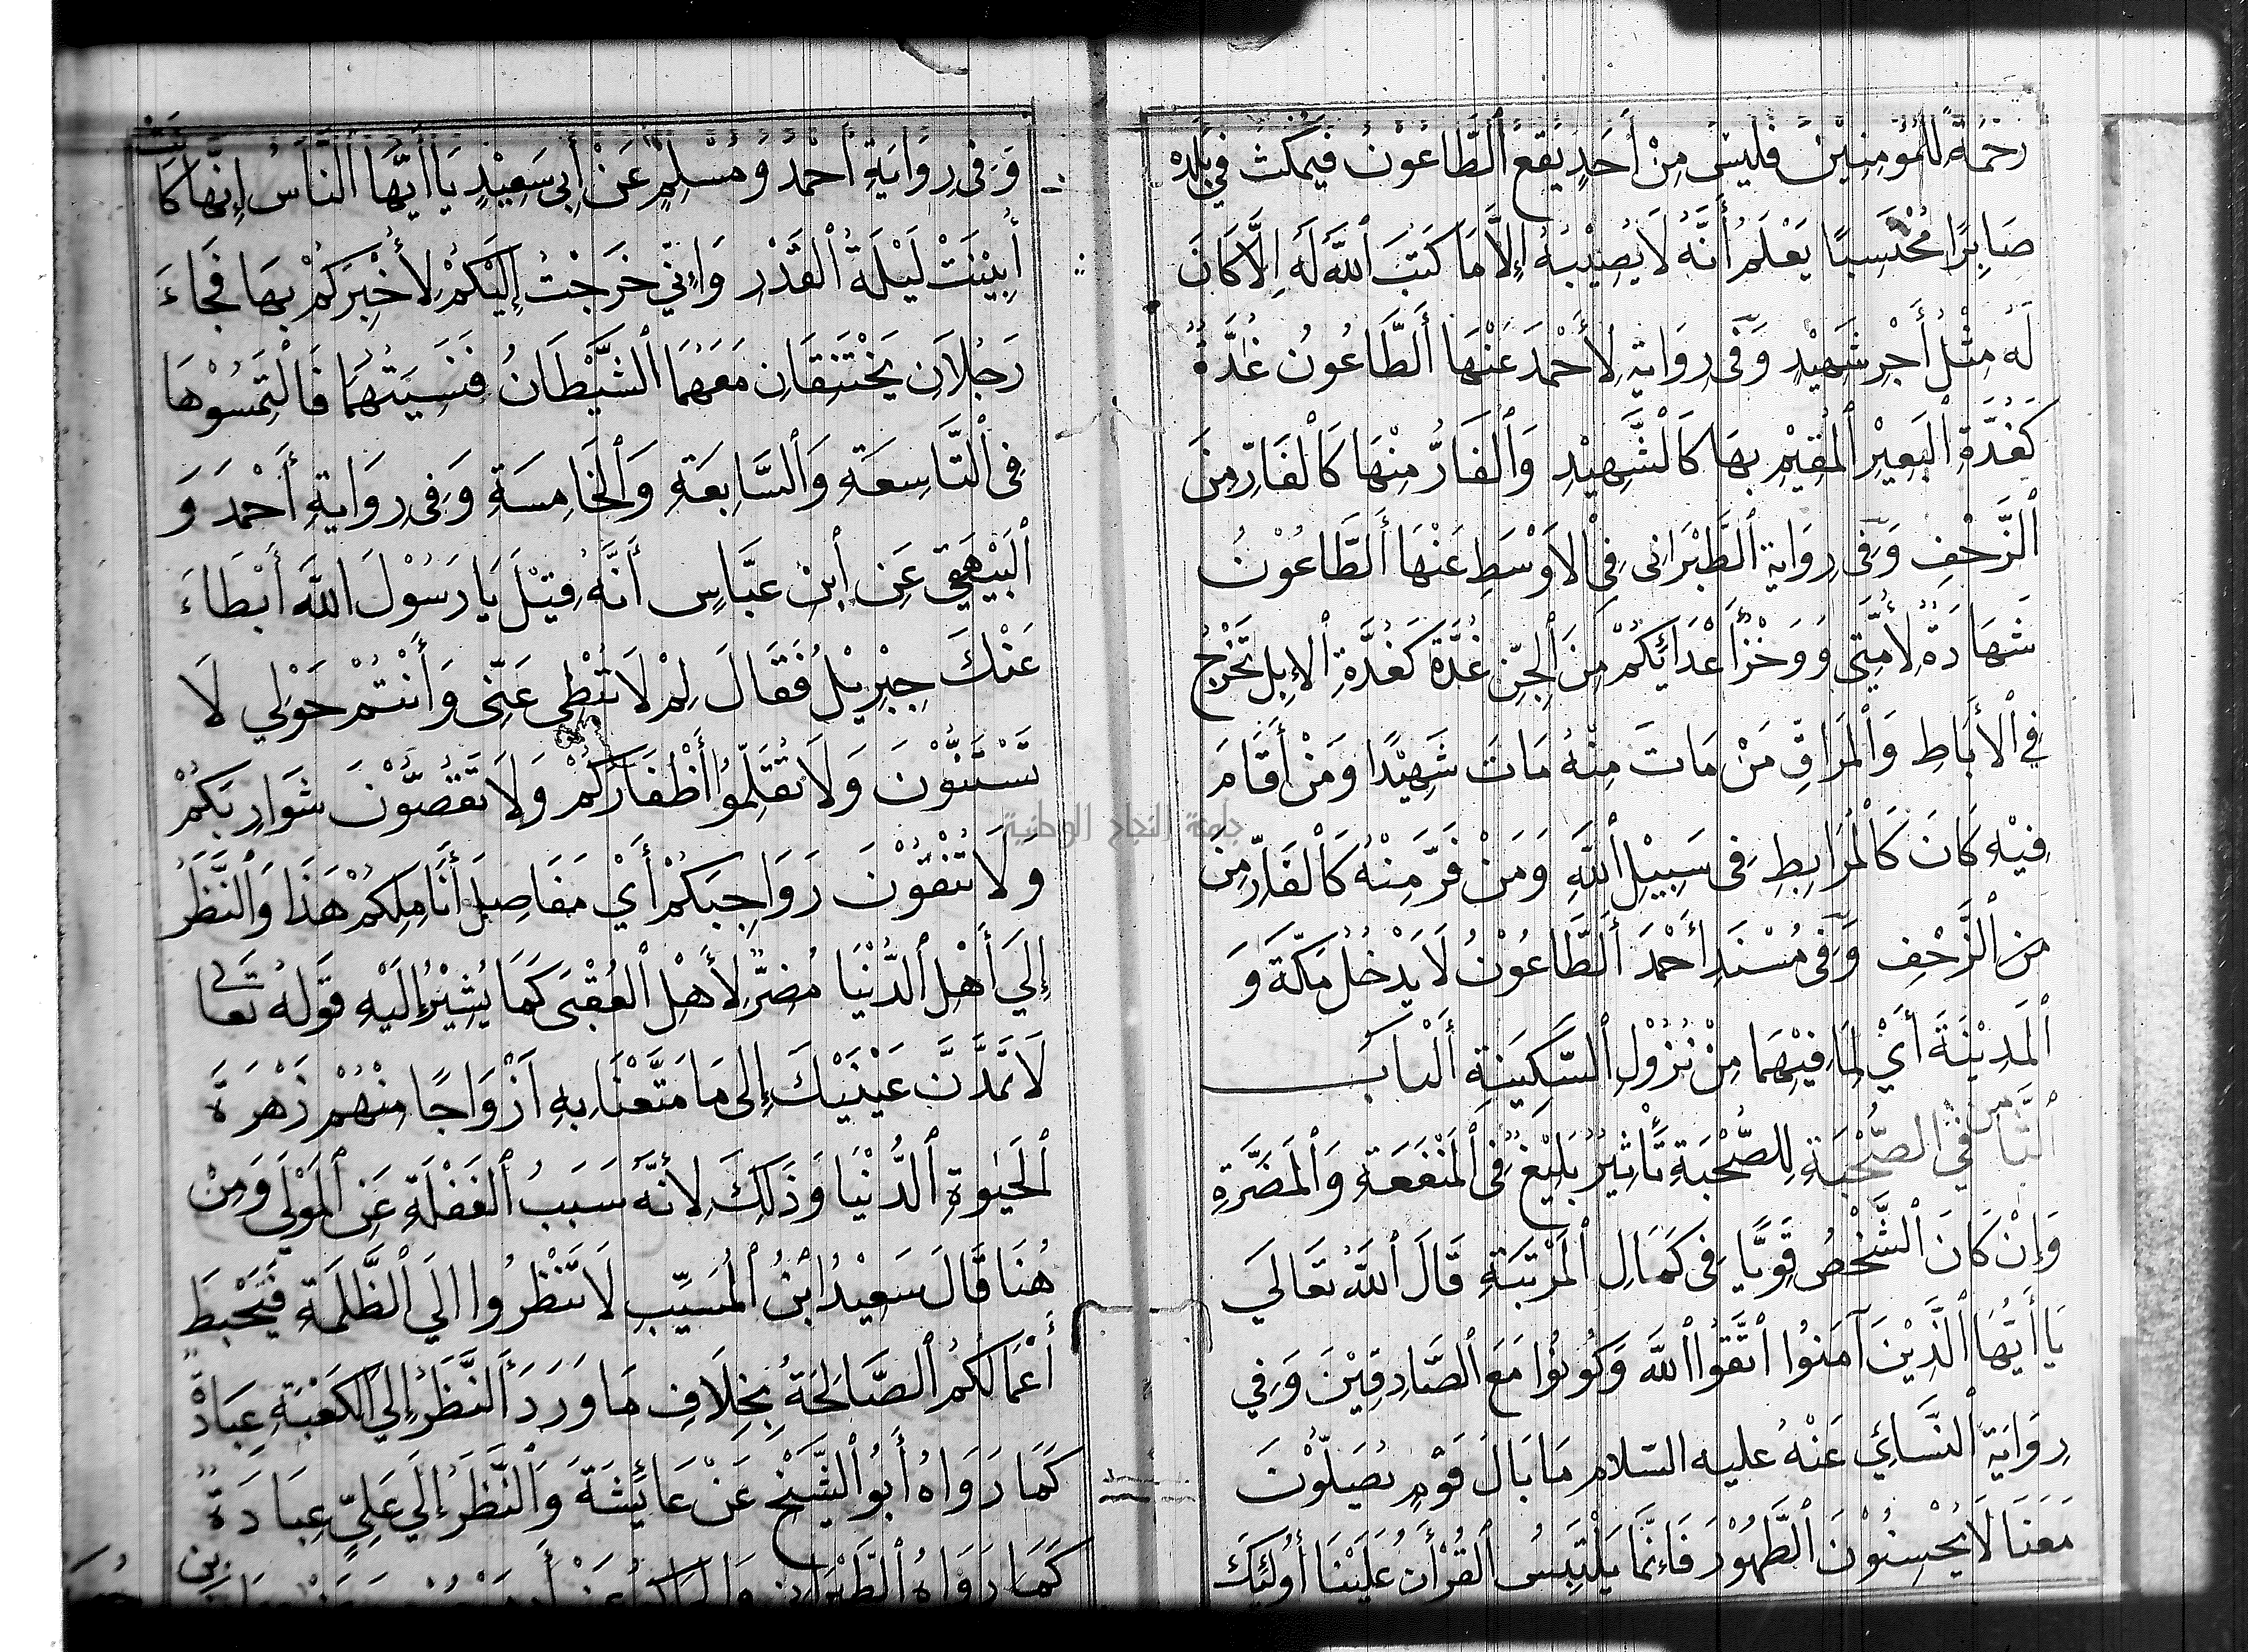 رَحْمَةً لِلْمُؤْمِنِيْنَ فَلَيْسَ مِنْ أَحَدٍ يَقَعُ الطَّاعُوْنُ فَيَمْكُثُ فِي بَلَدِهِ
صَابِرًا مُحْتَسِبًا يَعْلَمُ أَنَّهُ لَا يُصِيْبُهُ إِلَّا مَا كَتَبَ اللَّهُ لَهُ إِلَّا كَانَ
لَهُ مِثْلُ أَجْرِ شَهِيْدٍ وَفِى رِوَايَةٍ لِأَحْمَدَ عَنْهَا أَلطَّاعُونُ غُدَّةٌ
كَغُدَّةِ الْبَعِيْرِ الْمُقِيْمُ بِهَا كَالشَّهِيْدِ وَالْفَارُّ مِنْهَا كَالْفَارِّ مِنَ
الزَّحْفِ وَفِى رِوَايَةِ الطَّبْرَانى فِى الْاَوْسَطِ عَنْهَا أَلطَّاعُوْنُ
شَهَادَةٌ لِأُمَّتِى وَوَخْزُ أَعْدَائِكُمْ مِنَ الْجِنِّ غُدَّةٌ كَغُدَّةِ الْإِبِلِ تَخْرُجُ
فِي الْأَبَاطِ وَالْمَرَاقِّ مَنْ مَاتَ مِنْهُ مَاتَ شَهِيْدًا وَمَنْ أَقَامَ
فِيْهِ كَانَ كَالْمُرَابِطِ فِى سَبِيْلِ اللَّهِ وَمَنْ فَرَّ مِنْهُ كَالْفَارِّ مِنَ
مِنَ الزَّحْفِ وَفِى مُسْنَدِ أَحْمَدَ أَلطَّاعُوْنُ لَا يَدْخُلُ مَكَّةَ وَ
الْمَدِيْنَةَ أَيْ لِمَا فِيْهِمَا مِنْ نُزُوْلِ السَّكِيْنَةِ أَلْبَاب
الثَّامن في الصُّحْبَةِ لِلصُّحْبَةِ تَأْثِيْرٌ بَلِيْغٌ فِى الْمَنْفَعَةِ وَالْمَضَرَّةِ
وَإِنْ كَانَ الشَّخْصُ قَوِيًّا فِى كَمَالِ الْمَرْتَبَةِ قَالَ اللَّهُ تَعَالَي
يَا أَيُّهَا الَّذِيْنَ آمَنُوْا اتَّقُوْا اللَّهَ وَكُوْنُوْا مَعَ الصَّادِقِيْنَ وَفِي
رِوَايَةِ النَّسَائِي عَنْهُ عليه السلام مَا بَالُ قَوْمٍ يُصَلُّوْنَ
مَعَنَا لَا يُحْسِنُوْنَ الطَّهُوْرَ فَإِنَّمَا يَلْتَبِسُ الْقُرْأَنَ عَلَيْنَا أُوْلَئِكَ
وَفِى رِوَايَةِ أَحْمَدَ وَمُسْلِمٍ عَنْ أَبِى سَعِيْدٍ يَا أَيُّهَا النَّاسُ إِنَّهَا كَانَتْ
أُبِيْنَتْ لَيْلَةُ الْقَدْرِ وَإِنِّي خَرَجْتُ إِلَيْكُمْ لِأُخْبِرَكُمْ بِهَا فَجَاءَ
رَجُلَانِ يَخْتَنِقَانِ مَعَهُمَا الشَّيْطَانُ فَنَسِيْتُهَا فَالْتَمِسُوْهَا
فِى التَّاسِعَةِ وَالسَّابِعَةِ وَالْخَامِسَةِ وَفِى رِوَايَةِ أَحْمَدَ وَ
الْبَيْهَقِي عَنِ ابْنِ عَبَّاسٍ أَنَّهُ قِيْلَ يَا رَسُوْلَ اللَّهِ أَبْطَاءَ
عَنْكَ جِبْرِيْلُ فَقَالَ لِمْ لَا تُبْطِى عَنِّى وَأَنْتُمْ حَوْلِي لَا
تَسْتَنُّوْنَ وَلَا تُقَلِّمُوْا أَظْفَارَكُمْ وَلَا تَقُصُّوْنَ شَوَارِبَكُمْ
وَلَا تُنْقُوْنَ رَوَاجِبَكُمْ أَيْ مَفَاصِلَ أَنَامِلِكُمْ هَذَا وَالنَّظَرُ
إِلَي أَهْلِ الدُّنْيَا مُضِرٌّ لِأَهْلِ الْعُقْبَى كَمَا يُشِيْرُ إِلَيْهِ قَوْلُهُ تَعَالَى
لَا تَمُدَّنَّ عَيْنَيْكَ إِلى مَا مَتَّعْنَا بِهِ أَزْوَاجًا مِنْهُمْ زَهْرَةَ
الْحَيٰوةِ الدُّنْيَا وَذَلِكَ لِأَنَّهُ سَبَبُ الْغَفْلَةِ عَنِ الْمَوْلَي وَمِنْ
هُنَا قَالَ سَعِيْدُ ابْنُ الْمُسَيِّبِ لَا تَنْظُرُوا اِلَي الظَّلَمَةِ فَتَحْبَطَ
أَعْمَالُكُمُ الصَّالِحَةُ بِخِلَافِ مَا وَرَدَ أَلنَّظَرُ إِلَي الْكَعْبَةِ عِبَادَةٌ
كَمَا رَوَاهُ أَبُوْ الشَّيْخِ عَنْ عَائِشَةَ وَالنَّظَرُ إِلَي عَلِيٍّ عِبَادَةٌ
كَمَا رَوَاهُ الطَّبْرَانِى
جامعة النجاح الوطنية